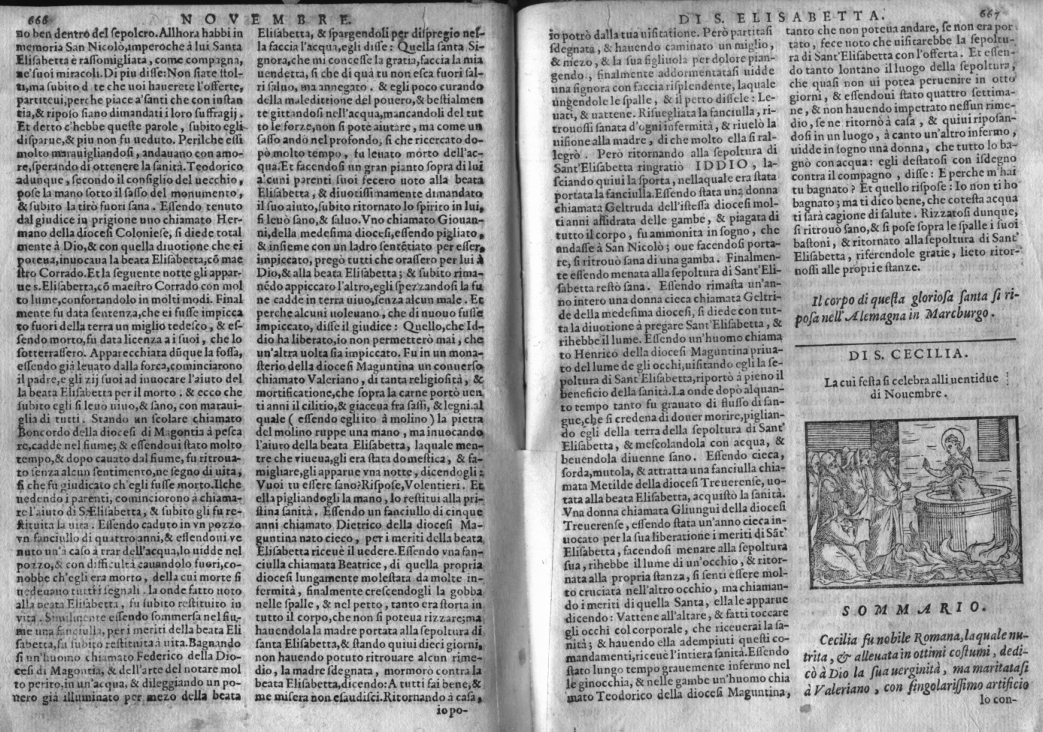 666
NOVEMBRE.
no ben dentro del sepolcro. Allhora habbi in
memoria San Nicolò, imperoche à lui Santa
Elisabetta è rassomigliata, come compagna,
ne' suoi miracoli. Di piu disse: Non siate stol-
ti, ma subito che uoi hauerete l'offerte,
partiteui, perche piace a' santi che con instan
tia, & riposo siano dimandati i loro suffragij.
Et detto c'hebbe queste parole, subito egli
disparue, & piu non fu ueduto. Perilche essi
molto marauigliandosi, andauano con amo-
re, sperando di ottenere la sanità. Teodorico
adunque, secondo il consiglio del uecchio,
pose la mano sotto il sasso del monumento,
& subito la tirò fuori sana. Essendo tenuto
dal giudice in prigione uno chiamato Her-
mano della diocesi Coloniese, si diede total
mente à Dio, & con quella diuotione che ei
poteua, inuocaua la beata Elisabetta, cõ mae
stro Corrado. Et la seguente notte gli appar-
ue s. Elisabetta, cõ maestro Corrado con mol
to lume, confortandolo in molti modi. Final
mente fu data sentenza, che ei fusse impicca
to fuori della terra un miglio tedesco, & es-
sendo morto, fu data licenza a i suoi, che lo
sotterrassero. Apparecchiata dũque la fossa,
essendo già leuato dalla forca, cominciarono
il padre, e gli zij suoi ad inuocare l'aiuto del
la beata Elisabetta per il morto. & ecco che
subito egli si leuò uiuo, & sano, con maraui-
glia di tutti. Stando un scolare chiamato
Boncordo della diocesi di Magontia à pesca
re, cadde nel fiume; & essendoui stato molto
tempo, & dopo cauato dal fiume, fu ritroua-
to senza alcun sentimento, ne segno di uita,
si che fu giudicato ch'egli fusse morto. Ilche
uedendo i parenti, cominciorono à chiama-
re l'aiuto di S. Elisabetta, & subito gli fu re-
stituita la uita. Essendo caduto in vn pozzo
vn fanciullo di quattro anni, & essendoui ve
nuto un'à caso à trar dell'acqua, lo uidde nel
pozzo, & con difficultà cauandolo fuori, co-
nobbe ch'egli era morto, della cui morte si
uedeuano tutti i segnali. la onde fatto noto
alla beata Elisabetta, fu subito restituito in
vita. Similmente essendo sommersa nel fiu-
me una fanciulla, per i meriti della beata Eli
sabetta, fu subito restituita à uita. Bagnando
si un'huomo chiamato Federico della Dio-
cesi di Magontia, & dell'arte del notare mol
to perito, in un'acqua, & dileggiando un po-
uero già illuminato per mezo della beata
Elisabetta, & spargendoli per dispregio nel-
la faccia l'acqua, egli disse: Quella santa Si-
gnora, che mi concesse la gratia, faccia la mia
uendetta, si che di quà tu non esca fuori sal-
ri saluo, ma annegato. & egli poco curando
della maledittione del pouero, & bestialmen
te gittandosi nell'acqua, mancandoli del tut
to le forze, non si pote aiutare, ma come un
sasso andò nel profondo, si che ricercato do-
pò molto tempo, fu leuato morto dell'ac-
qua. Et facendosi un gran pianto sopra di lui
alcuni parenti suoi fecero uoto alla beata
Elisabetta, & diuotissimamente dimandato
il suo aiuto, subito ritornato lo spirito in lui,
si leuò sano, & saluo. Vno chiamato Giouan-
ni, della medesima diocesi, essendo pigliato,
& insieme con un ladro sentẽtiato per esser
impiccato, pregò tutti che orassero per lui à
Dio, & alla beata Elisabetta; & subito rima-
nẽdo appiccato l'altro, egli spezzandosi la fu
ne cadde in terra uiuo, senza alcun male. Et
perche alcuni uoleuano, che di nuouo fusse
impiccato, disse il giudice: Quello, che Id-
dio ha liberato, io non permetterò mai, che
un'altra uolta sia impiccato. Fu in un mona-
sterio della diocesi Maguntina un conuerso
chiamato Valeriano, di tanta religiosità, &
mortificatione, che sopra la carne portò uen
ti anni il cilitio, & giaceua fra sassi, & legni. al
quale (essendo egli ito à molino) la pietra
del molino ruppe una mano, ma inuocando
l'aiuto della beata Elisabetta, laquale men-
tre che viueua, gli era stata domestica, & fa-
migliare, gli apparue vna notte, dicendogli:
Vuoi tu essere sano? Rispose, Volentieri. Et
ella pigliandogli la mano, lo restituì alla pri-
stina sanità. Essendo un fanciullo di cinque
anni chiamato Dietrico della diocesi Ma-
guntina nato cieco, per i meriti della beata
Elisabetta riceuè il uedere. Essendo vna fan-
ciulla chiamata Beatrice, di quella propria
diocesi lungamente molestata da molte in-
fermità, finalmente crescendogli la gobba
nelle spalle, & nel petto, tanto era storta in
tutto il corpo, che non si poteua rizzare; ma
hauendola la madre portata alla sepoltura di
santa Elisabetta, & stando quiui dieci giorni,
non hauendo potuto ritrouare alcun rime-
dio, la madre sdegnata, mormorò contra la
beata Elisabetta, dicendo: A tutti fai bene, &
me misera non esaudisci. Ritornando à casa,
io po-
DI S. ELISABETTA.
667
io potrò dalla tua uisitatione. Però partitasi
sdegnata, & hauendo caminato un miglio,
& mezo, & la sua figliuola per dolore pian-
gendo, finalmente addormentatasi uidde
una signora con faccia risplendente, laquale
ungendole le spalle, & il petto dissele: Le-
uati, & uattene. Risuegliata la fanciulla, ri-
trouossi sanata d'ogni infermità, & riuelò la
uisione alla madre, di che molto ella si ral-
legrò. Però ritornando alla sepoltura di
Sant'Elisabetta ringratiò IDDIO, la-
sciando quiui la sporta, nellaquale era stata
portata la fanciulla. Essendo stata una donna
chiamata Geltruda dell'istessa diocesi mol-
ti anni assidrata delle gambe, & piagata di
tutto il corpo, fu ammonita in sogno, che
andasse à San Nicolò; oue facendosi porta-
re, si ritrouò sana di una gamba. Finalmen-
te essendo menata alla sepoltura di Sant'Eli-
sabetta restò sana. Essendo rimasta un'an-
no intero una donna cieca chiamata Geltri-
de della medesima diocesi, si diede con tut-
ta la diuotione à pregare Sant'Elisabetta, &
rihebbe il lume. Essendo un'huomo chiama
to Henrico della diocesi Maguntina priua-
to del lume de gli occhi, uisitando egli la se-
poltura di Sant'Elisabetta, riportò à pieno il
beneficio della sanità. La onde dopò alquan-
to tempo tanto fu grauato di flusso di san-
gue, che si credeua di douer morire, piglian-
do egli della terra della sepoltura di Sant'
Elisabetta, & mescolandola con acqua, &
beuendola diuenne sano. Essendo cieca,
sorda, mutola, & attratta una fanciulla chia-
mata Metilde della diocesi Treuerense, uo-
tata alla beata Elisabetta, acquistò la sanità.
Vna donna chiamata Gliungui della diocesi
Treuerense, essendo stata un'anno cieca in-
uocato per la sua liberatione i meriti di Sãt'
Elisabetta, facendosi menare alla sepoltura
sua, rihebbe il lume di un'occhio, & ritor-
nata alla propria stanza, si sentì essere mol-
to cruciata nell'altro occhio, ma chiaman-
do i meriti di quella Santa, ella le apparue
dicendo: Vattene all'altare, & fatti toccare
gli occhi col corporale, che riceuerai la sa-
nità; & hauendo ella adempiuti questi co-
mandamenti, riceuè l'intiera sanità. Essendo
stato lungo tempo grauemente infermo nel
le ginocchia, & nelle gambe un'huomo chia
mato Teodorico della diocesi Maguntina,
tanto che non poteua andare, se non era por
tato, fece uoto che uisitarebbe la sepoltu-
ra di Sant'Elisabetta con l'offerta. Et essen-
do tanto lontano il luogo della sepoltura,
che quasi non ui potea peruenire in otto
giorni, & essendoui stato quattro settima-
ne, & non hauendo impetrato nessun rime-
dio, se ne ritornò à casa, & quiui riposan-
dosi in un luogo, à canto un'altro infermo,
uidde in sogno una donna, che tutto lo ba-
gnò con acqua: egli destatosi con isdegno
contra il compagno, disse: E perche m'hai
tu bagnato? Et quello rispose: Io non ti ho
bagnato; ma ti dico bene, che cotesta acqua
ti sarà cagione di salute. Rizzatosi dunque,
si ritrouò sano, & si pose sopra le spalle i suoi
bastoni, & ritornato alla sepoltura di Sant'
Elisabetta, riferendole gratie, lieto ritor-
nossi alle proprie stanze.
Il corpo di questa gloriosa santa si ri-
posa nell'Alemagna in Marcburgo.
DI S. CECILIA.
La cui festa si celebra alli uentidue
di Nouembre.
SOMMARIO.
Cecilia fu nobile Romana, laquale nu-
trita, & alleuata in ottimi costumi, dedi-
cò à Dio la sua uerginità, ma maritatasi
à Valeriano, con singolarissimo artificio
lo con-